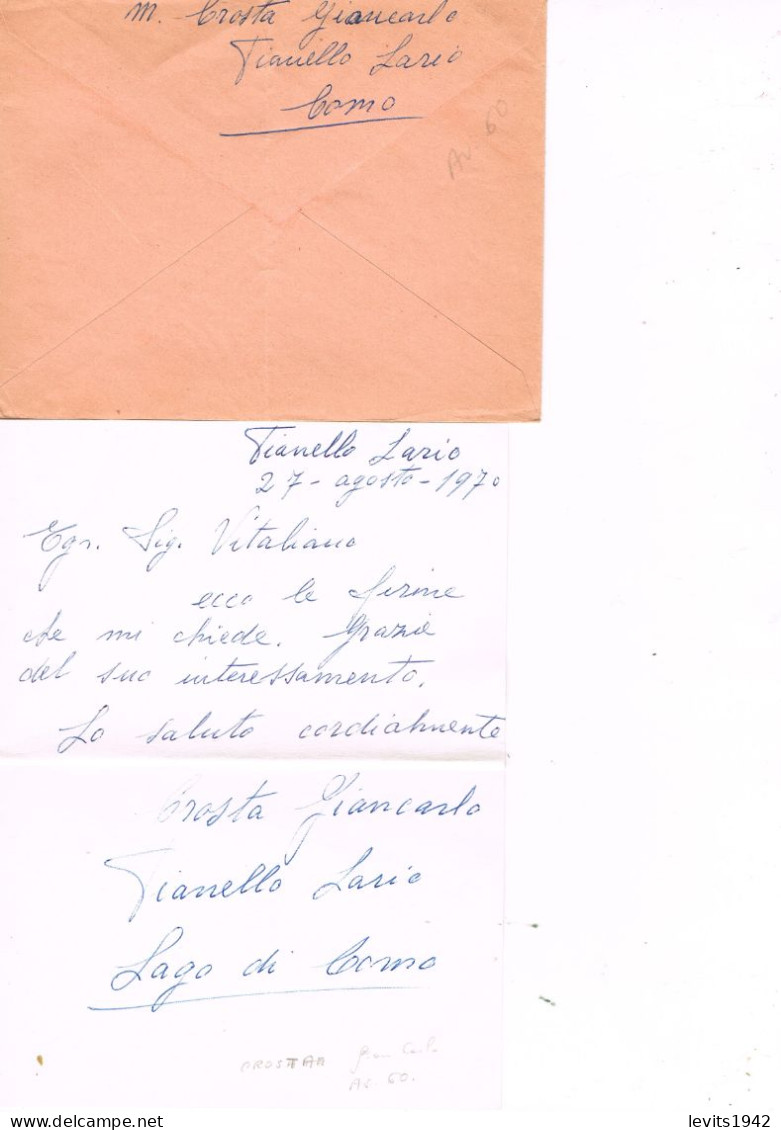 M. Crosta Giancarlo
Pianello Lario
Como
AV 60
Pianello Lario
27 - agosto - 1970
Egr. Sig. Vitaliano
ecco le firme
che mi chiede. Grazie
del suo interessamento.
Lo saluto cordialmente
Crosta Giancarlo
Pianello Lario
Lago di Como
Gian Carlo
AV 60.
levits1942